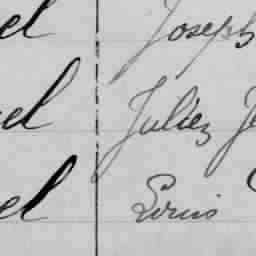 el Joseph
el Juliez Je
el Louis